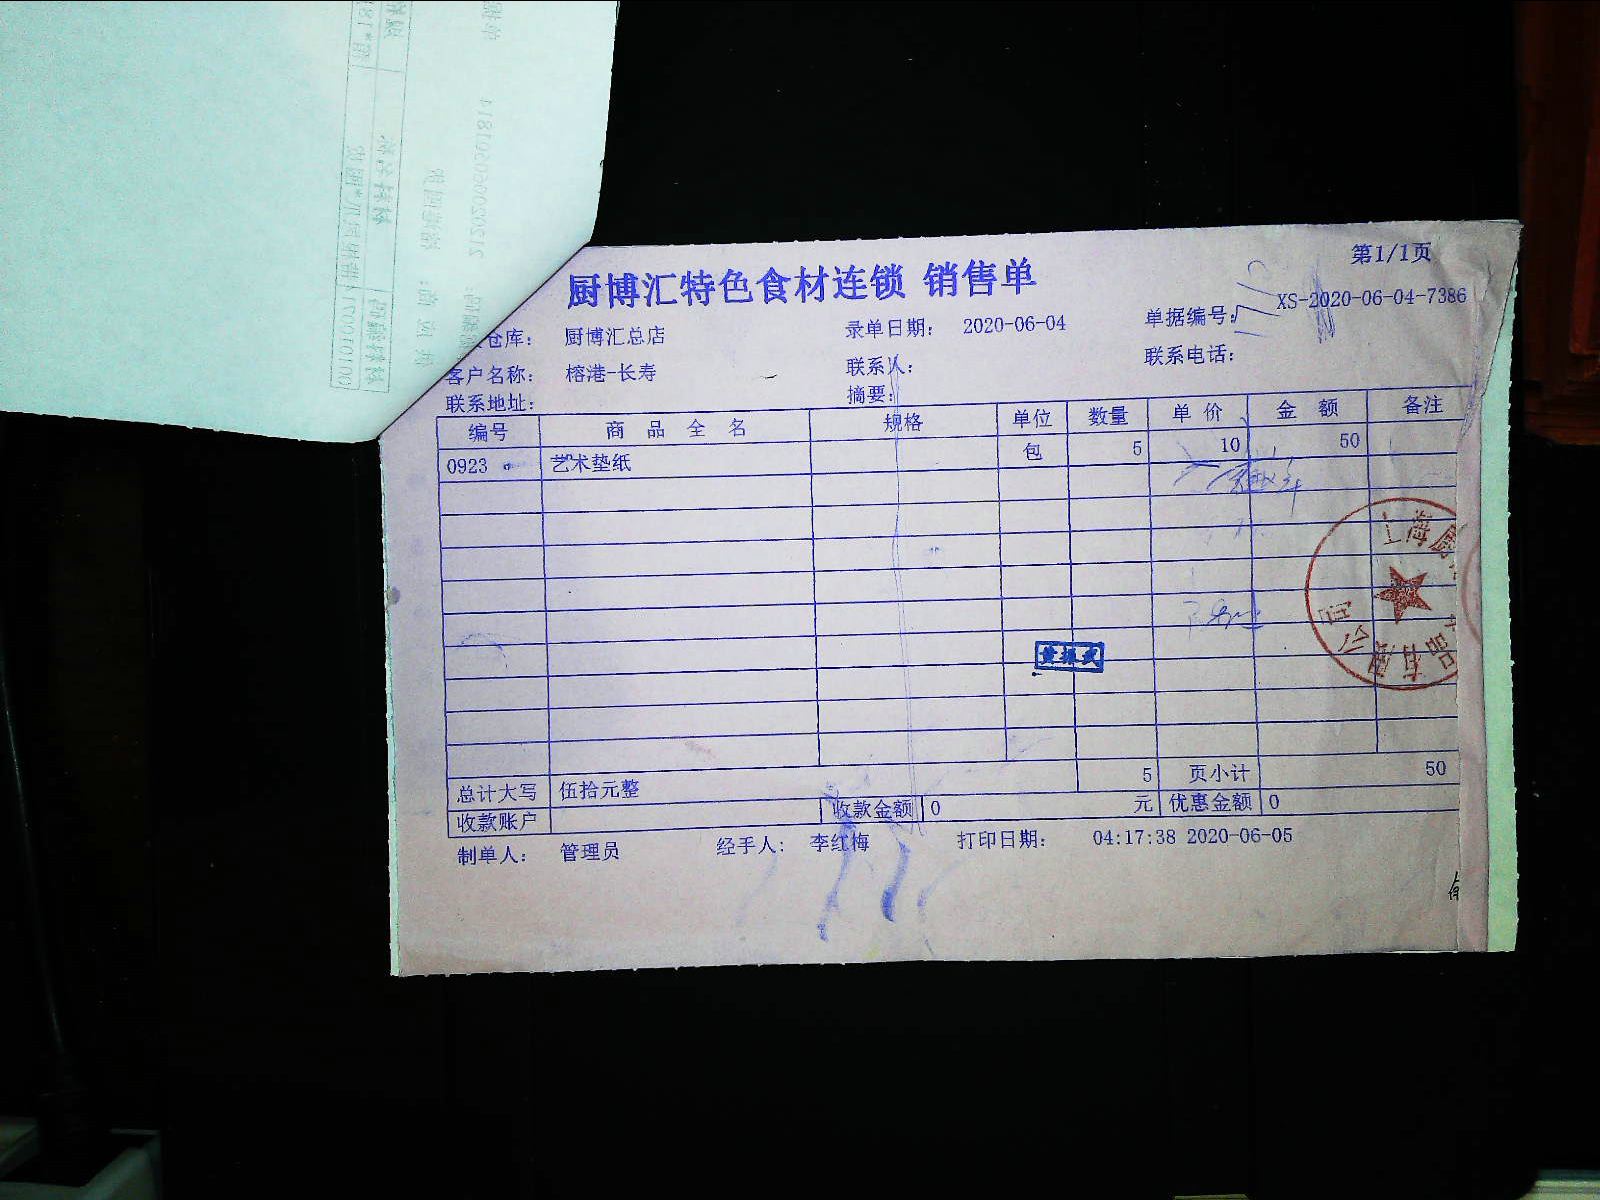 第1/1页
厨博汇特色食材连锁 销售单
仓库： 厨博汇总店 录单日期： 2020-06-04 单据编号： XS-2020-06-04-7386
客户名称： 榕港-长寿 联系人： 联系电话：
联系地址： 摘要：
编号 商品全名 规格 单位 数量 单价 金额 备注
0923 艺术垫纸 包 5 10 50
总计大写 伍拾元整 5 页小计 50
收款账户 收款金额 0 元 优惠金额 0
制单人： 管理员 经手人： 李红梅 打印日期： 04:17:38 2020-06-05
上海 品有限公司